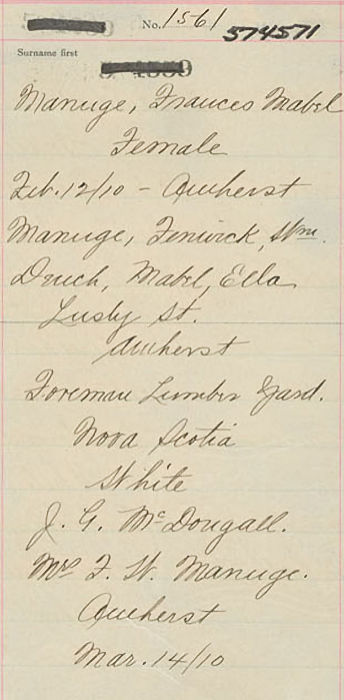 No. 1561
574571
Surname first
Manuge, Frances Mabel
Female
Feb. 12/10 - Amherst
Manuge, Fenwick, Wm.
Mabel, Ella
Lusby St.
Amherst
Foreman Lumber Yard.
Nova Scotia
White
J. G. McDougall.
Mrs F. W. Manuge.
Amherst
Mar. 14/10